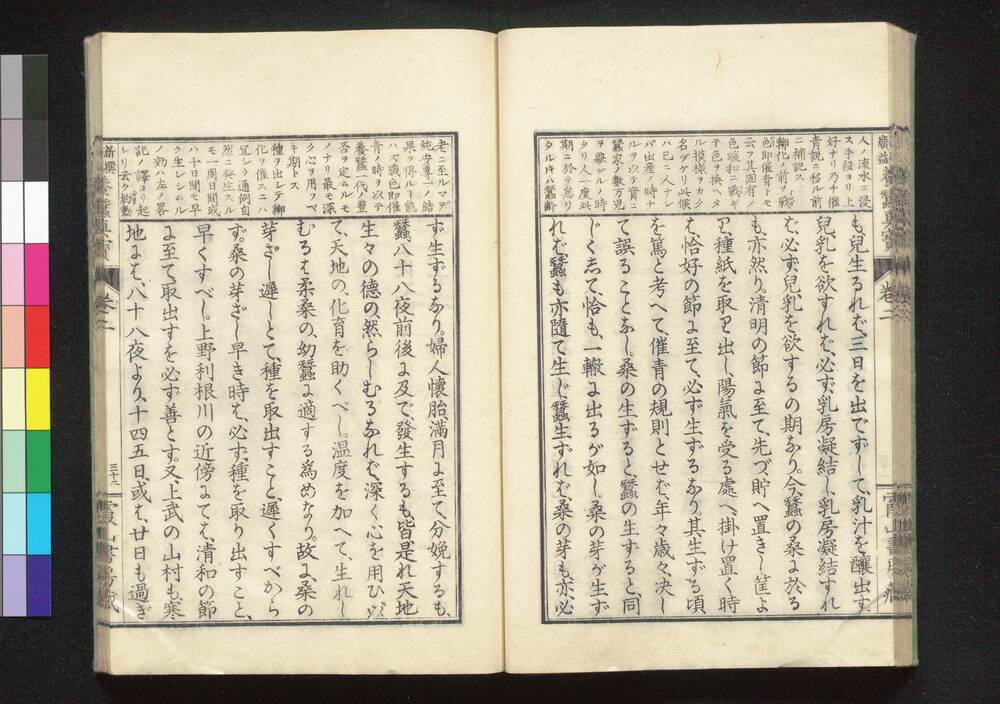 も、兒生るれバ、三日を出でずして、乳汁を釀出す。
兒乳を欲すれバ、必ず乳房凝結し、乳房凝結すれ
バ、必ず兒乳を欲するの期なり。今、蠶の桑に於る
も、亦然り。清明の節に至て、先づ貯へ置きし筐よ
り、種紙を取り出し、陽氣を受る處へ掛け置く時
ハ、恰好の節に至て、必ず生ずるなり。其生ずる頃
を篤と考へて、催青の規則とせバ、年々歳々、決し
て誤ることなし。桑の生ずると、蠶の生ずると、同
じくして、恰も、一轍に出るが如し。桑の芽が生ず
れバ、蠶も亦隨て生じ、蠶生ずれバ、桑の芽も亦、必
人ノ流水ニ浸
ス手段ヨリ上
好ナリ乃チ催
青説ニ移ル前
ニ補記ス
孵化ノ前ヲ戰
色即催青ト
云フ其固有ノ
色暖和ニ戰ギ
テ色ヲ換ヘタ
ル摸樣ヲカク
名ヅケリ此候
ハ已ニ人ナレ
バ出産ノ時ナ
ルヲ以テ實ニ
蠶家ノ數万兒
ヲ擧グルノ時
タリ人一度此
期ニ於テ怠リ
タルキハ蠶齡
卷二
ず生ずるなり。婦人懷胎滿月に至て、分娩するも、
蠶、八十八夜前後に及で、發生するも、皆是れ天地
生々の德の、然らしむるなれバ、深く心を用ひ以
て、天地の、化育を助くべし。温度を加へて、生れし
むるハ、柔桑の、幼蠶に適する爲めなり。故に桑の
芽ざし遲しとて、種を取出すこと、遲くすべから
ず。桑の芽ざし早き時ハ、必ず種を取り出すこと、
早くすべし。上野利根川の近傍にてハ、清和の節
に至て取出すを必ず善とす。又、上武の山村も、寒
地にハ、八十八夜より、十四五日、或ハ、廿日も過ぎ
老ニ至ルマデ
純安專一ノ結
果ヲ得ルモ能
ハズ戰色即催
青ノ時ヲ以テ
養蠶一代ノ豐
否ヲ定ムルモ
ノナリ最モ深
ク心ヲ用フベ
キ期トス
種ヲ出シテ孵
化ヲ催スニハ
宜シク通例自
然ニ發生スル
モ一周日間或
ハ十日間モ早
ク生レシムル
ノ効ハ左ノ畧
記ノ譯ヨリ起
新撰養蠶眞寳
卷二
三十二
霞山書房藏